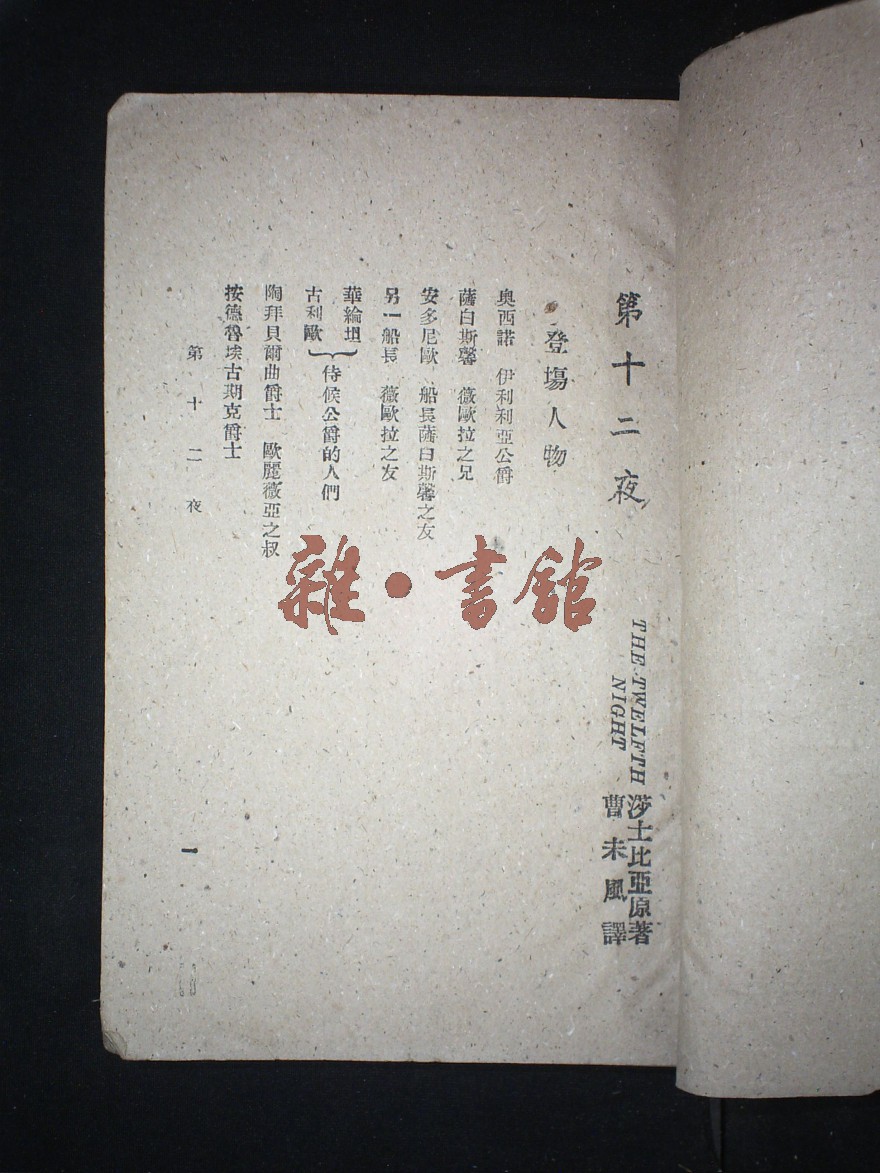 第十二夜
THE TWELFTH
NIGHT
莎士比亞原著
曹未風譯
登場人物
奧西諾 伊利利亞公爵
薩白斯馨 薇歐拉之兄
安多尼歐 船長薩白斯馨之友
另一船長 薇歐拉之友
華綸坦
古利歐
侍候公爵的人們
陶拜貝爾曲爵士 歐麗薇亞之叔
按德魯埃古期克爵士
第十二夜
一
雜·書館